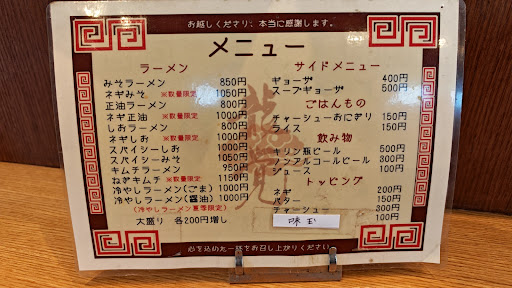 お越しくださり、本当に感謝します。
メニュー
ラーメン
みそラーメン 850円
ネギみそ ※数量限定 1050円
正油ラーメン 800円
ネギ正油 ※数量限定 1000円
しおラーメン 800円
ネギしお ※数量限定 1000円
スパイシーしお 1000円
スパイシーみそ 1050円
キムチラーメン 950円
ねぎキムチ ※数量限定 1150円
冷やしラーメン(ごま) 1000円
冷やしラーメン(醤油) 1000円
(冷やしラーメン夏季限定)
大盛り 各200円増し
サイドメニュー
ギョーザ 400円
スープギョーザ 500円
ごはんもの
チャーシューおにぎり 150円
ライス 150円
飲み物
キリン瓶ビール 500円
ノンアルコールビール 300円
ジュース 100円
トッピング
ネギ 200円
バター 150円
チャーシュー 300円
味玉 100円
心を込めた一杯をお召し上がりください。